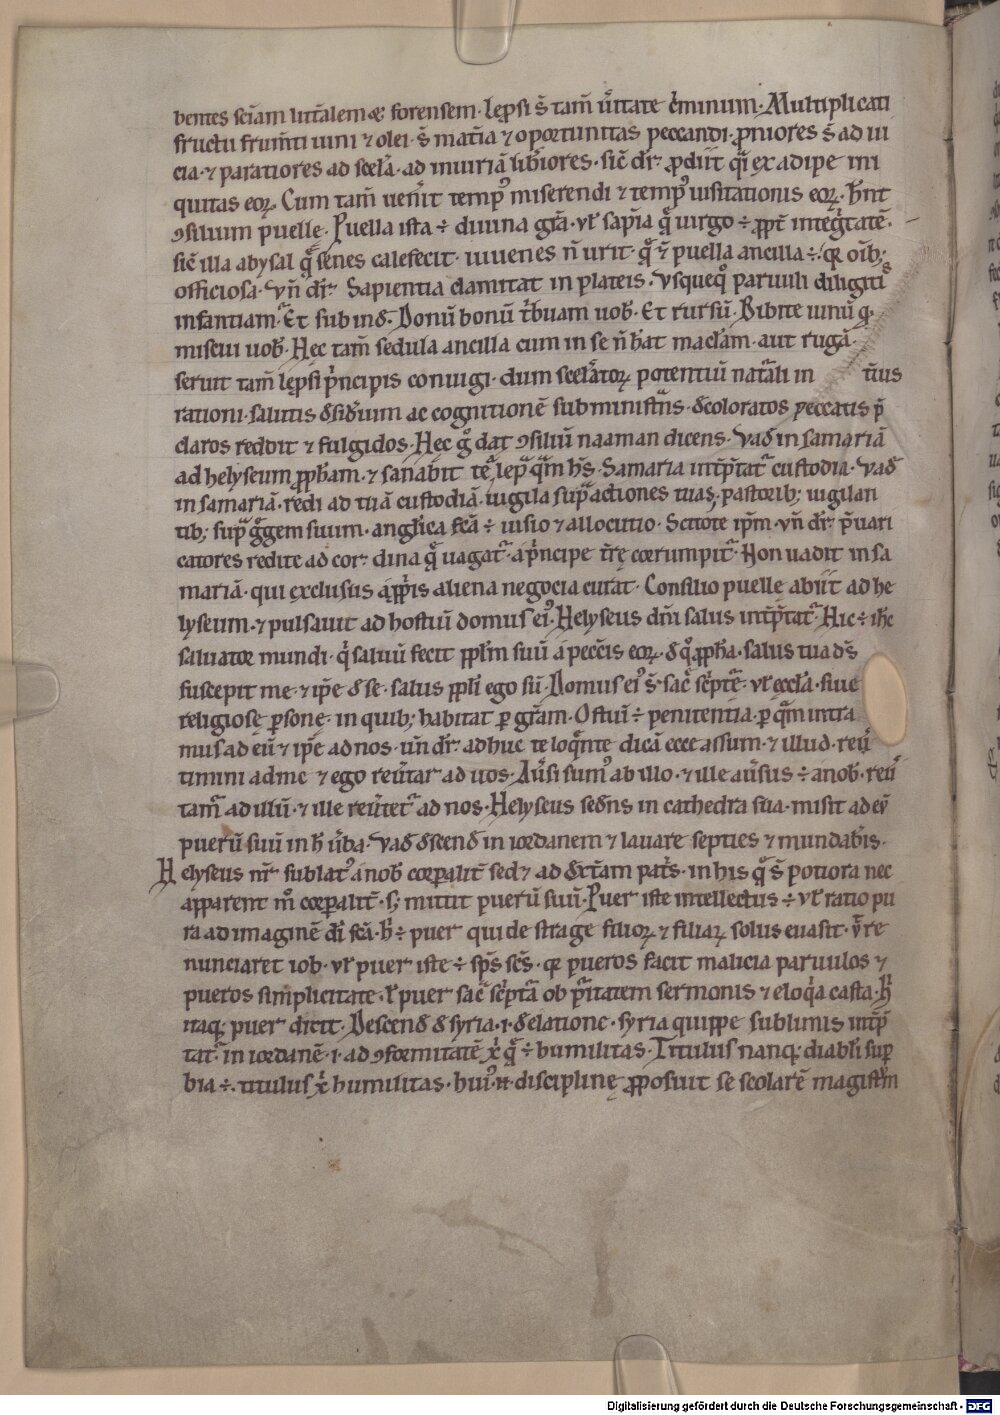 bentes sciam̄ litt̄alem & forensem · lep̄si s̄ tam̄ ū͛itate c̓minum · Multiplicati
fructu frum̄ti uini ⁊ olei · s̄ mat̄ia ⁊ oportunitas peccandi · p̄niores s̄ ad ui
cia · ⁊ paratiores ad scel̄a · ad iniuriā lib̄iores · sic̄ dr̄ · p̄diit qͣi ex adipe ini
quitas eoꝝ · Cum tam̄ uen̄it temp᾽ miserendi ⁊ temp᾽ uisitationis eoꝝ · h̄nt
ꝯsilium puelle · Puella ista ÷ diuina gr̄a · ul̄ sap̄ia qͣ uirgo ÷ ꝓpt̄ integͥtatē ·
sic̄ illa abysal qͣ senes calefecit · iuuenes n̄ urit · qͣ ⁊ puella ancilla ÷ · qꝛ oīb;
officiosa · vn̄ dr̄ · Sapientia clamitat in plateis · vsquequͦ paruuli diligitis
infantiam · Et subinđ · Donū bonū t̓buam uob̄ · Et rursū · Bibite uinū q̇
miscui uob̄ · Hęc tam̄ sedula ancilla cum in se n̄ h̄at macl̄am · aut rugā ·
seruit tam̄ lęp̄si p̓ncipis coniugi · dum scel̄atoꝝ potentiū natͣali in t̄ius
rationi · salutis đsid̄ium ac cognitionē subministͣns · đcoloratos peccatis p̄
claros reddit ⁊ fulgidos · Hęc gͦ dat ꝯsiliū naaman dicens · Vađ in samariā
ad helyseum ꝓph̄am · ⁊ sanabit te a lepͣ qͣm h̄s · Samaria int̄p̄tatͬ custodia · Vađ
in samariā · redi ad tuā custodiā · uigila supͣ actiones tuas · pastorib; uigilan
tib; supͣ gͤgem suum · angl̄ica fc̄a ÷ uisio ⁊ allocutio · Scitote ip̄m · vn̄ dr̄ · p̄uari
catores redite ad cor · dina qͣ uagatͬ · a p̓ncipe t̄rę corrumpitͬ · Non uadit in sa
mariā · qui exclusus a ꝓp̓is aliena negocia curat · Consilio puellę abiit ad he
lyseum · ⁊ pulsauit ad hostiū domus ei᾽ · Helyseus dm̄i salus int̄p̄tatͬ · Hic ÷ ihc
saluator mundi · qͥ saluū fecit ppl̄m suū a pecc̄is eoꝝ · đ qͦ ꝓph̄a · salus tua ds̄
suscepit me · ⁊ ip̄e đ se · salus ppl̄i ego sū · Domus ei᾽ s̄ · sac̄ sc̓ptē · ul̄ eccl̄a · siue
religiosę ꝑsonę · in quib; habitat ꝑ gr̄am · Ostiū ÷ penitentia · ꝑ qͣm intra
mus ad eū ⁊ ip̄e ad nos · un̄ dr̄ · adhuc te loqͣnte dicā ecce assum · ⁊ illud · reū
timini ad me ⁊ ego reūtar ad uos · Aūsi sum᾽ ab illo · ⁊ ille aūsus ÷ a nob̄ · reū
tamͬ ad illū · ⁊ ille reūtetͬ ad nos · Helyseus seđns in cathedra sua · misit ad eū
puerū suū in h̄ ūba · Vađ đscenđ in iordanem ⁊ lauare septies ⁊ mundab̓is ·
Helyseus nr̄ sublat᾽ a nob̄ corꝑalit̄ sed & ad đxt̄am pat̓s · in his qͣ s̄ potiora nec
apparent m̊ corꝑalit̄ · s; mittit puerū suū · Puer iste intellectus ÷ ul̄ ratio pu
ra ad imaginē di̅ fc̄a · h̓ ÷ puer qui de strage filioꝝ ⁊ filiaꝝ solus euasit · ut̄ re
nunciaret iob · ul̄ puer iste ÷ sp̄s sc̄s · qꝛ pueros facit malicia paruulos ⁊
pueros simplicitate · ul̄ puer sac̄ sc̓ptā ob pͥitatem sermonis ⁊ eloqͥa casta · h̓
itaqꝫ puer dicit · Descenđ đ syria · i · đ elatione · syria quippe sublimis int̄p̄
tatͬ in iordanē · i · ad ꝯformitatē xp̓i qͣ ÷ humilitas · Titulus nanqꝫ diabl̄i suꝑ
bia ÷ · titulus xp̓i humilitas · hui᾽ n̄ disciplinę ꝓposuit se scolarē magistͬm